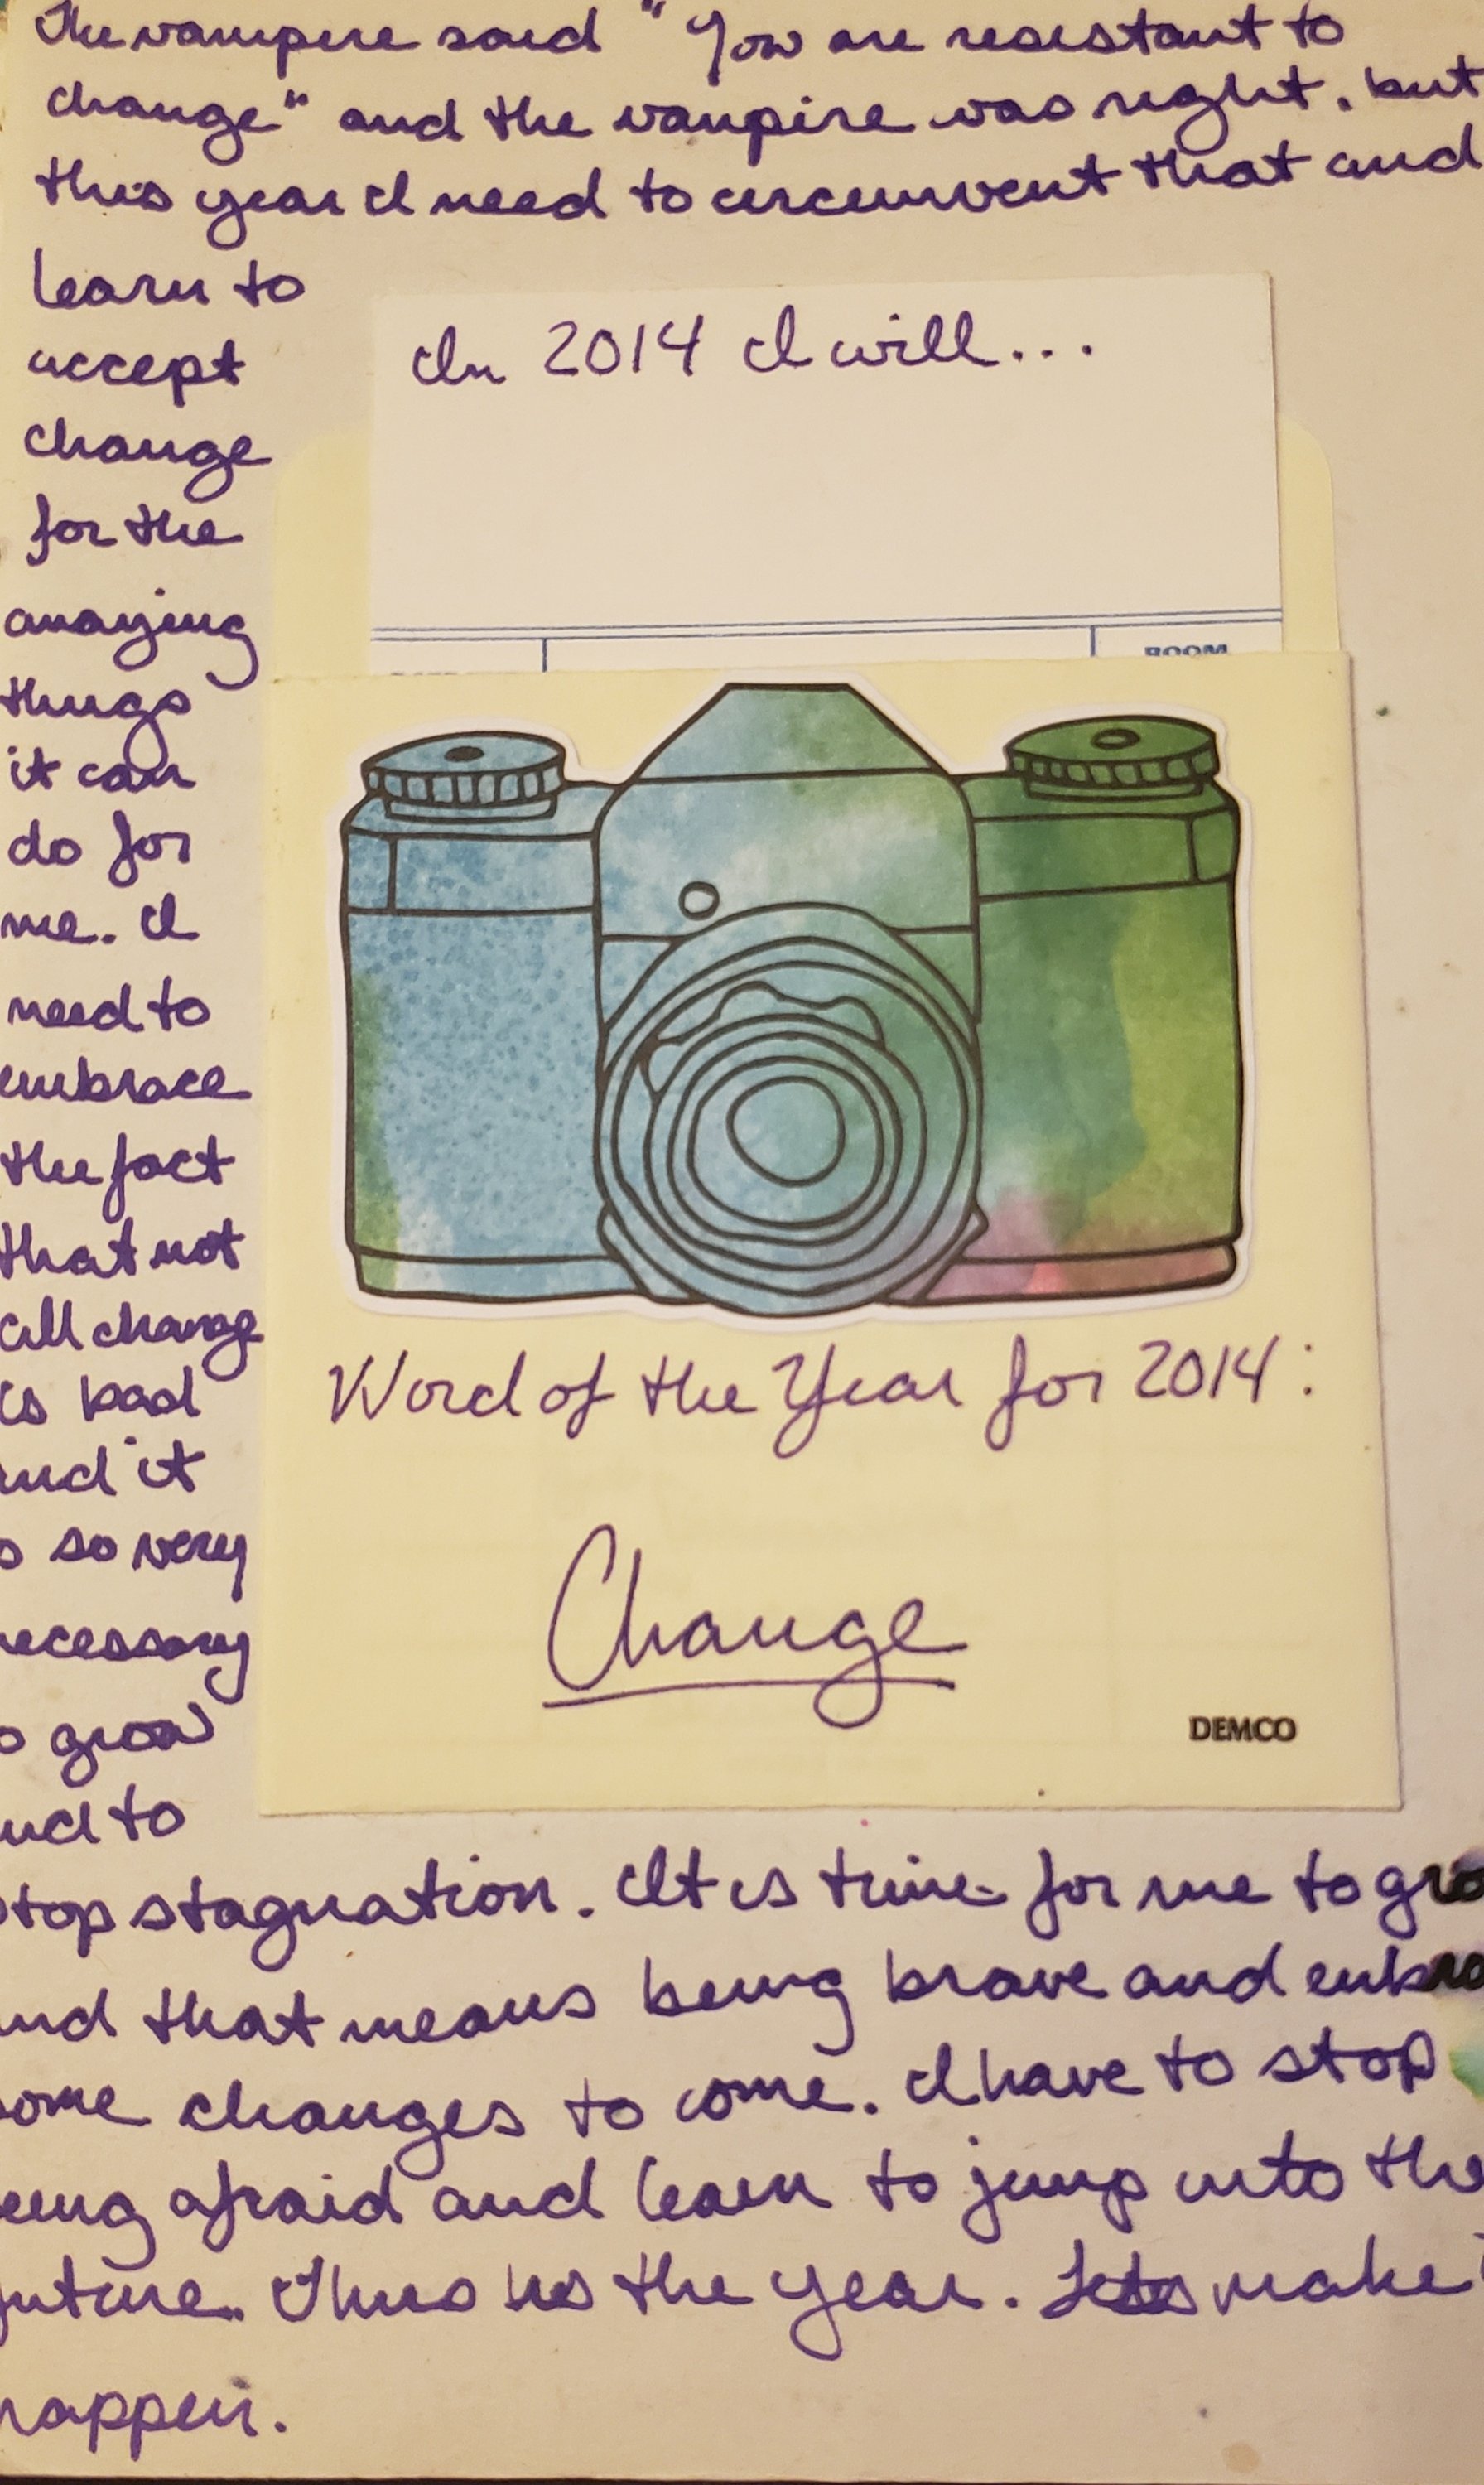 The vampire said "You are resistant to
change" and the vampire was right. but
this year I need to circumvent that and
learn to
accept
change
for the
amazing
things
it can
do for
me. I
need to
embrace
the fact
that not
all change
is bad
and it
s so very
necessary
o grow
and to
stop stagnation. It is time for me to gro
and that means being brave and embra
some changes to come. I have to stop
being afraid and learn to jump into the
future. This is the year. Lets make i
happen.
In 2014 I will...
ROOM
Word of the Year for 2014:
Change
DEMCO